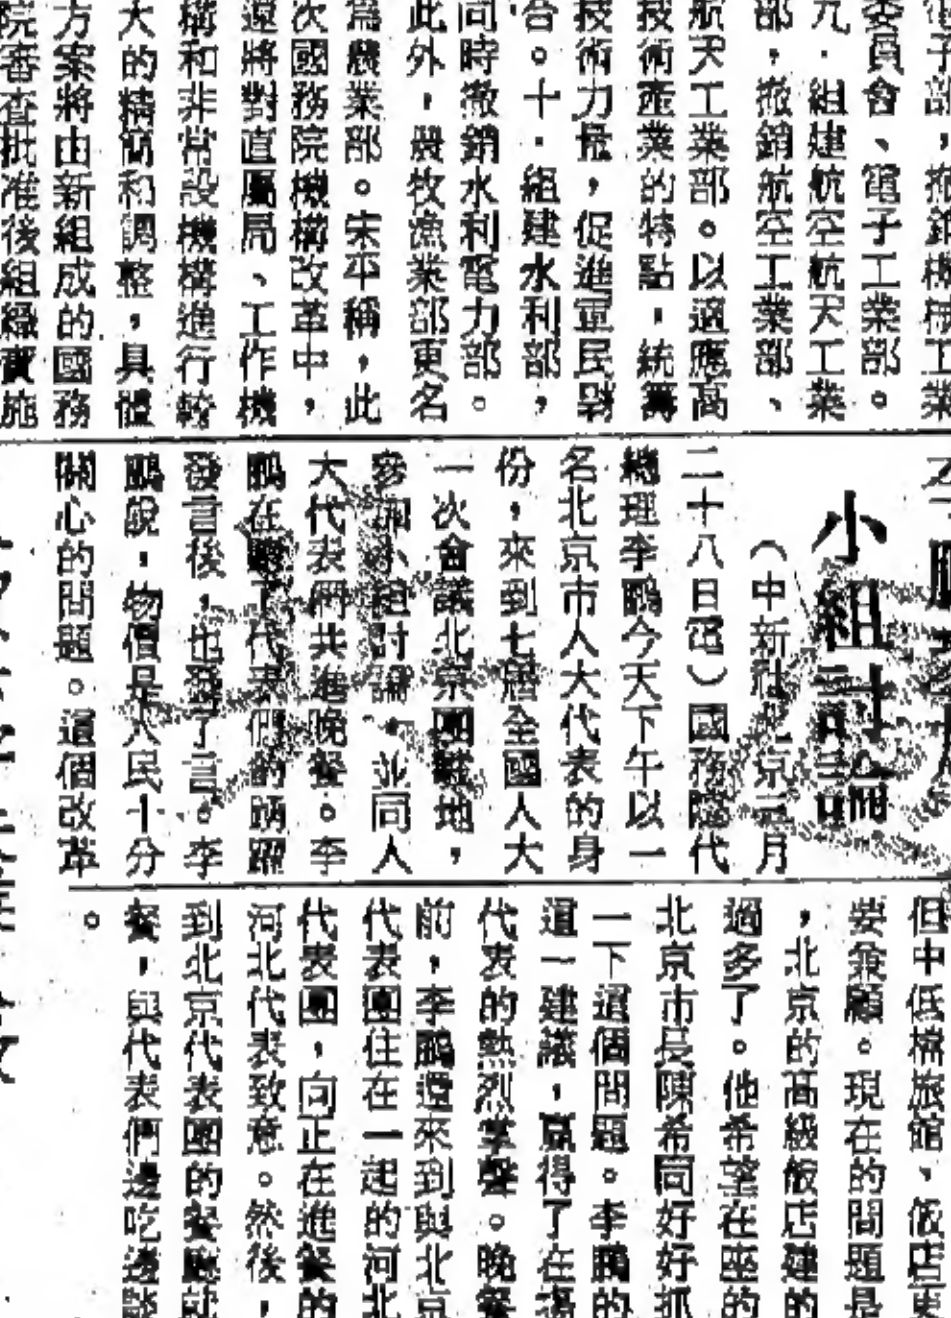 電子部,撤銷機械工業
委員會、電子工業部。
九.組建航空航天工業
部,撤銷航空工業部、
航天工業部。以適應高
技術產業的特點,統籌
技術力量,促進軍民
合。十.組建水利部,
同時撤銷水利電力部。
此外,農牧漁業部更名
為農業部。宋平稱,此
次國務院機構改革中,
還將對直屬局、工作機
構和非常設機構進行較
大的精簡和調整,具體
方案將由新組成的國務
院審查批准後組織實施
小組討論
(中新社北京三月
二十八日電)國務院代
總理李鵬今天下午以一
名北京市人大代表的身
份,來到七屆全國人大
一次會議北京團駐地,
參加小組討論,並同人
大代表們共進晚餐。李
鵬在聽了代表們的踴躍
發言後,也發了言。李
鵬說,物價是人民十分
關心的問題。這個改革
但中低檔旅館、飯店更
要兼顧。現在的問題是
,北京的高級飯店建的
過多了。他希望在座的
北京市長陳希同好好抓
一下這個問題。李鵬的
這一建議,贏得了在場
代表的熱烈掌聲。晚餐
前,李鵬還來到與北京
代表團住在一起的河北
代表團,向正在進餐的
河北代表致意。然後,
到北京代表團的餐廳就
餐,與代表們邊吃邊談
。